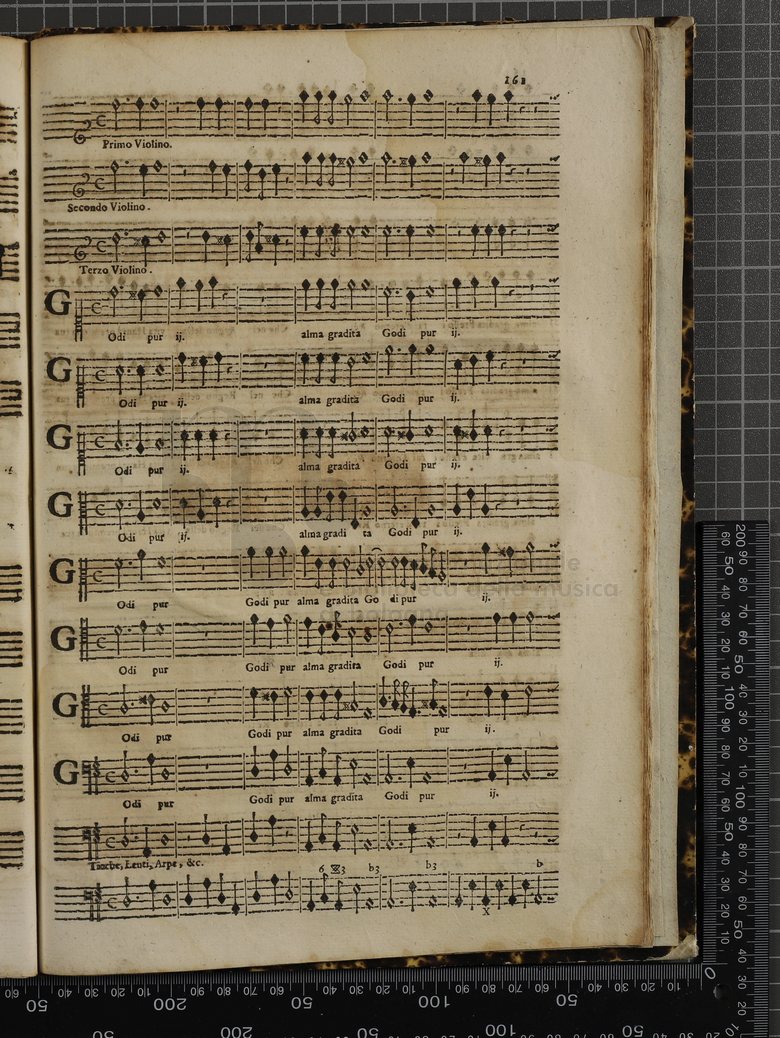 Primo Violino.
Secondo Violino.
Terzo Violino.
G
Odi pur ij. alma gradita Godi pur ij.
G
Odi pur ij. alma gradita Godi pur ij.
G
Odi pur ij. alma gradita Godi pur ij.
G
Odi pur ij. alma gradi ta Godi pur ij.
G
Odi pur Godi pur alma gradita Go di pur ij.
G
Odi pur Godi pur alma gradita Godi pur ij.
G
Odi pur Godi pur alma gradita Godi pur ij.
G
Odi pur Godi pur alma gradita Godi pur ij.
Tiorbe, Leuti, Arpe, &c.
6 3 b3 b3 b
X